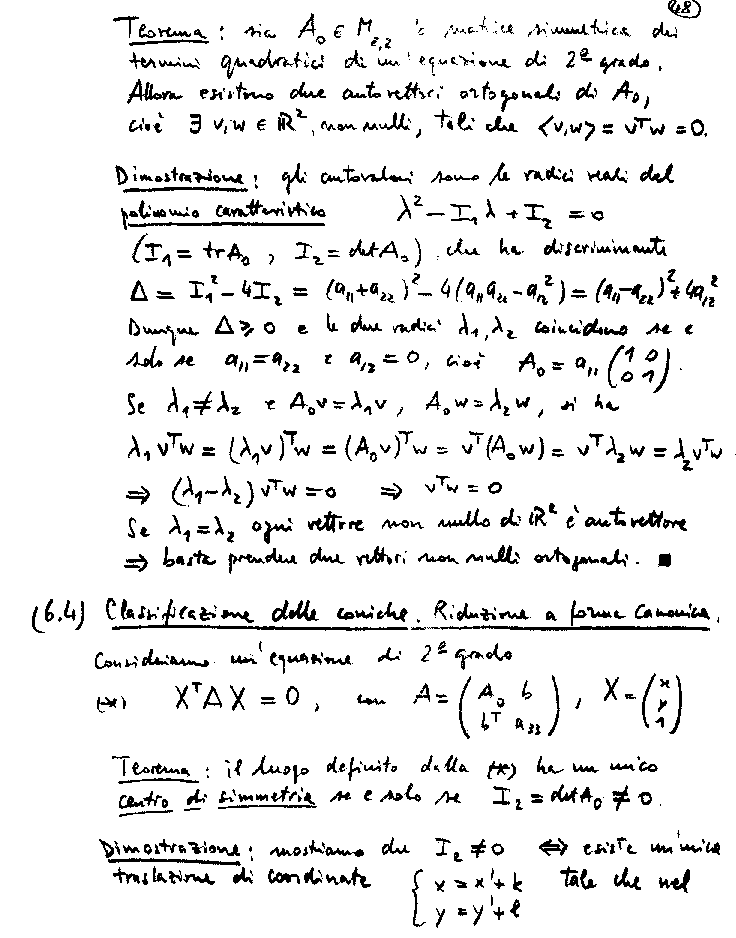 48
Teorema : sia A₀ ∈ M₂,₂ la matrice simmetrica dei
termini quadratici di un'equazione di 2º grado.
Allora esistono due autovettori ortogonali di A₀,
cioè ∃ v,w ∈ ℝ², non nulli, tali che ⟨v,w⟩ = vᵀw = 0.
Dimostrazione : gli autovalori sono le radici reali del
polinomio caratteristico λ² − I₁λ + I₂ = 0
(I₁ = tr A₀ , I₂ = det A₀) che ha discriminante
Δ = I₁² − 4I₂ = (a₁₁+a₂₂)² − 4(a₁₁a₂₂ − a₁₂²) = (a₁₁−a₂₂)² + 4a₁₂²
Dunque Δ ≥ 0 e le due radici λ₁, λ₂ coincidono se e
solo se a₁₁ = a₂₂ e a₁₂ = 0, cioè A₀ = a₁₁ (1 0 / 0 1).
Se λ₁ ≠ λ₂ e A₀v = λ₁v , A₀w = λ₂w, si ha
λ₁vᵀw = (λ₁v)ᵀw = (A₀v)ᵀw = vᵀ(A₀w) = vᵀλ₂w = λ₂vᵀw
⇒ (λ₁−λ₂)vᵀw = 0 ⇒ vᵀw = 0
Se λ₁ = λ₂ ogni vettore non nullo di ℝ² è autovettore
⇒ basta prendere due vettori non nulli ortogonali. ■
(6.4) Classificazione delle coniche. Riduzione a forma canonica.
Consideriamo un'equazione di 2º grado
(*) XᵀAX = 0 , con A = (A₀ b / bᵀ a₃₃) , X = (x / y / 1)
Teorema : il luogo definito dalla (*) ha un unico
centro di simmetria se e solo se I₂ = det A₀ ≠ 0.
Dimostrazione : mostriamo che I₂ ≠ 0 ⇔ esiste un'unica
traslazione di coordinate { x = x' + k tale che nel
y = y' + l